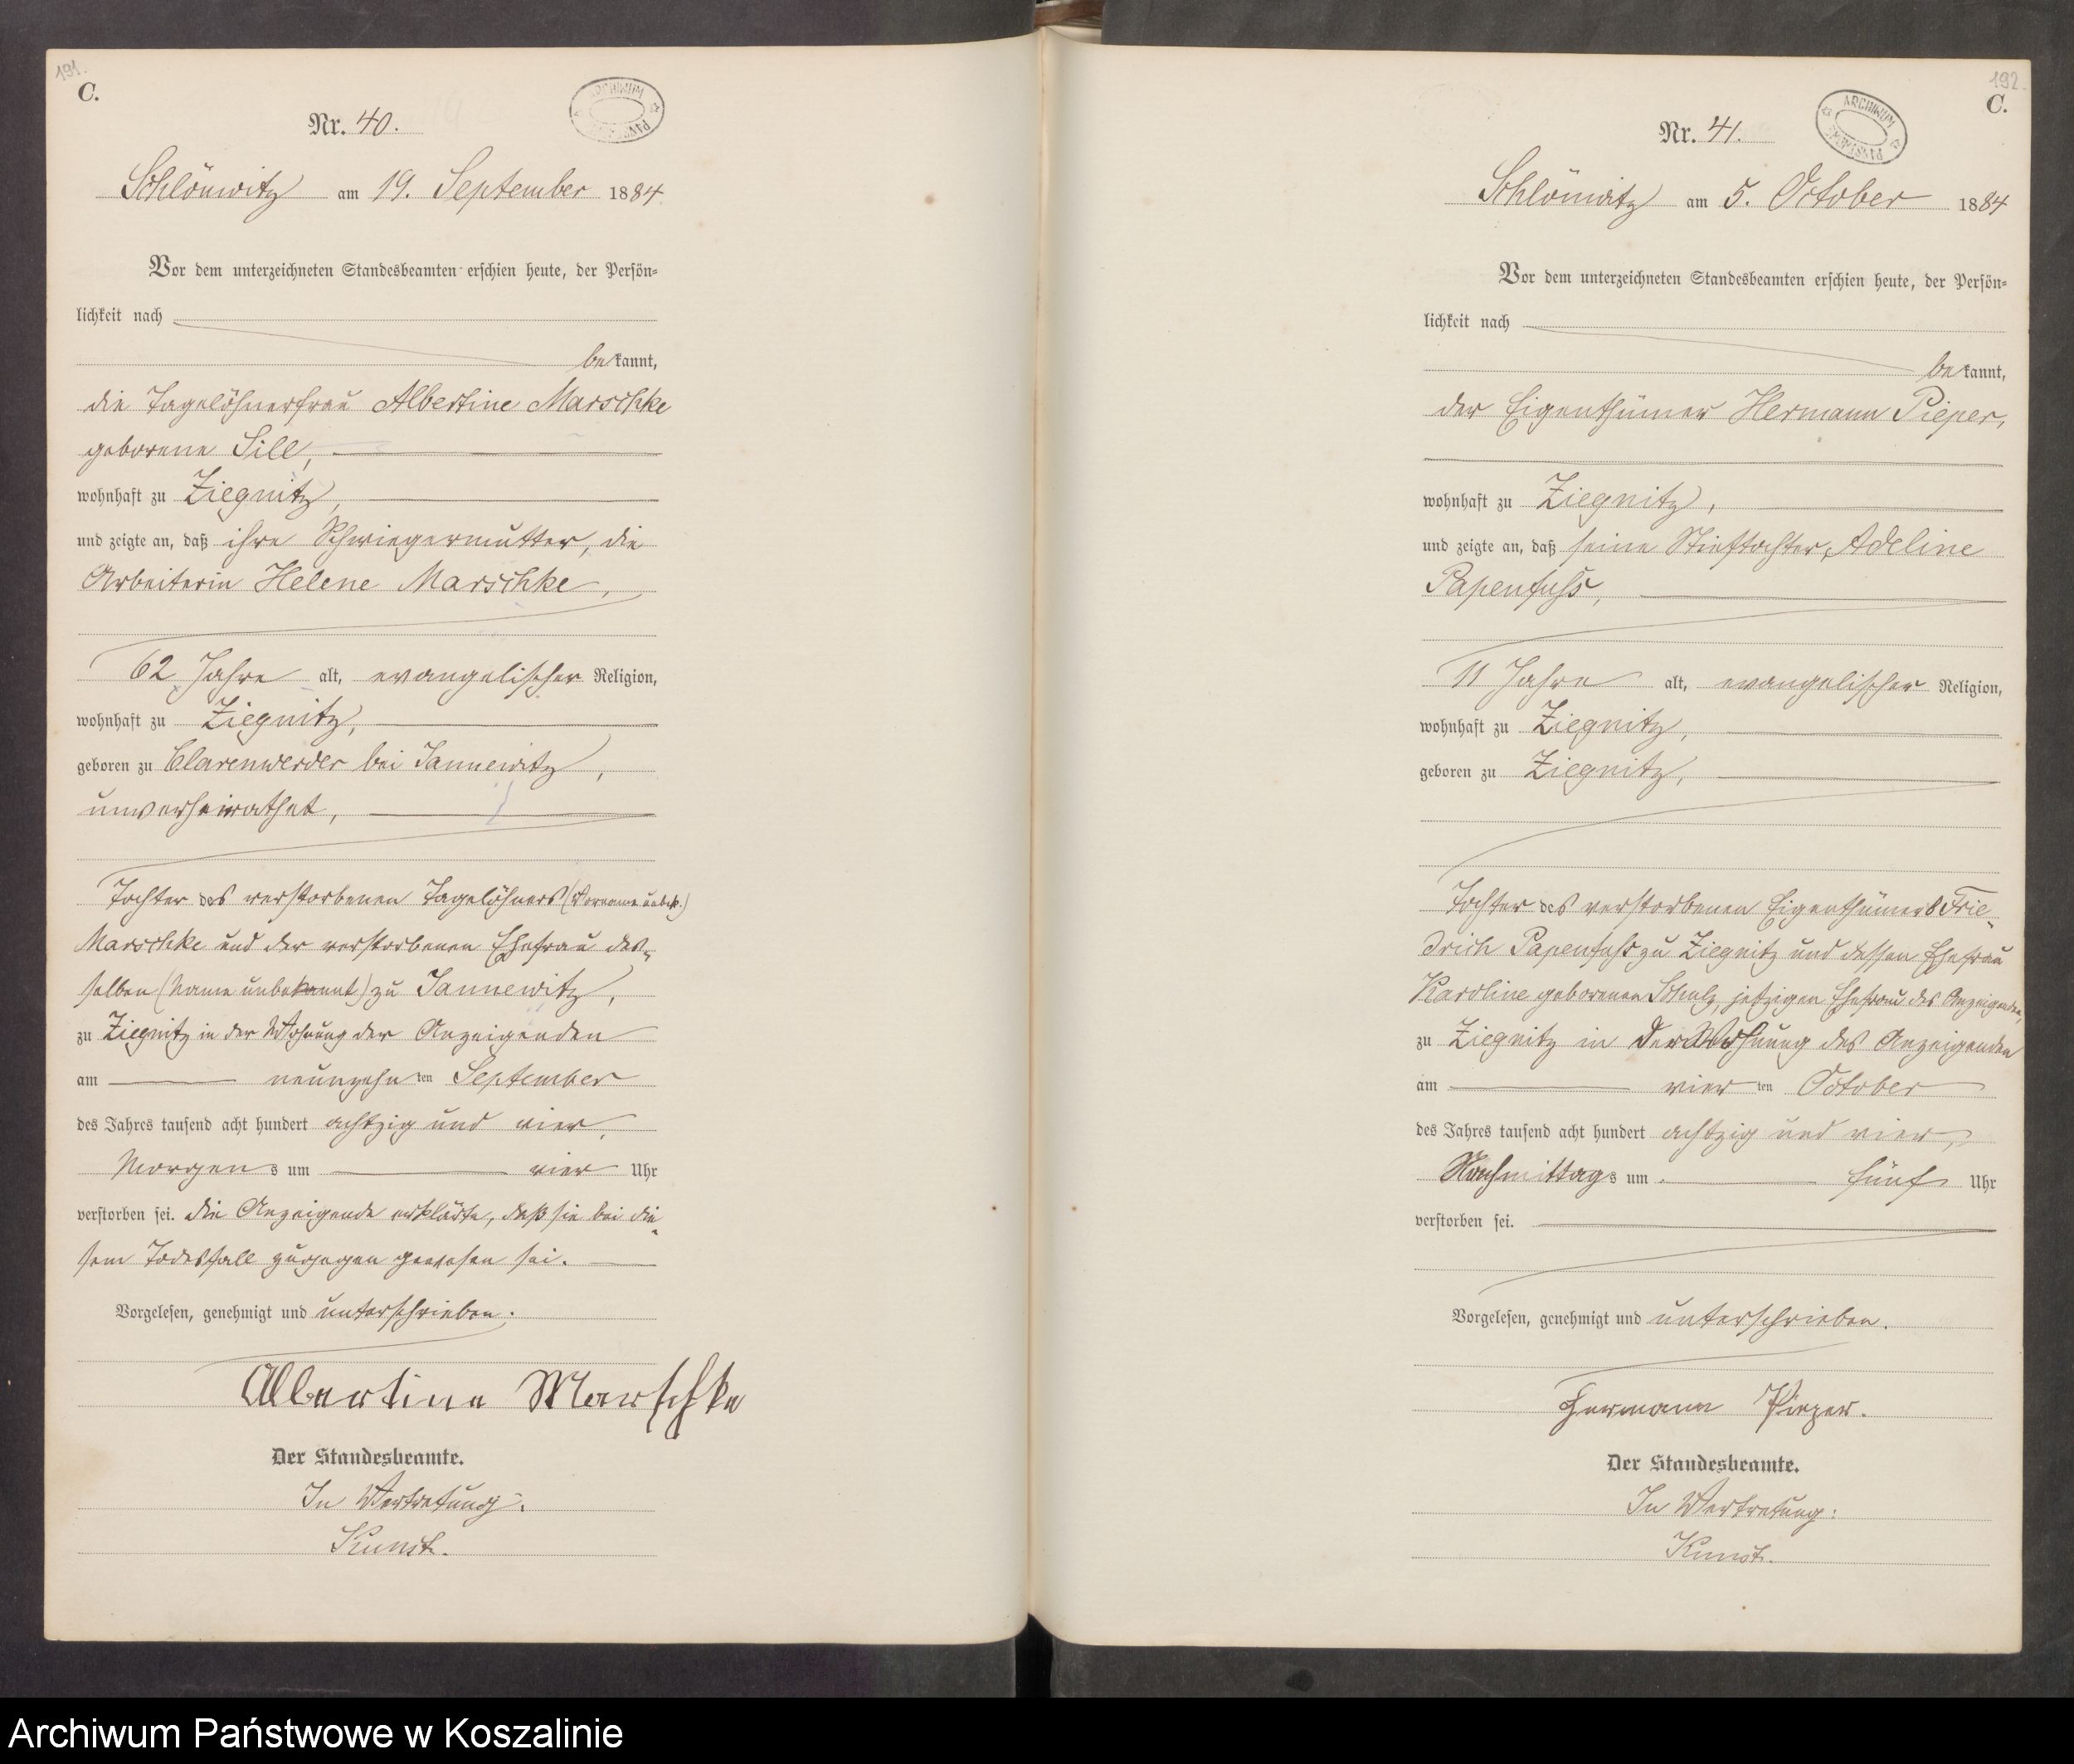 191.
C.
Nr. 40.
ARCHIWUM
Schlönwitz am 19. September 1884
Vor dem unterzeichneten Standesbeamten erschien heute, der Persön-
lichkeit nach
bekannt,
die Tagelöhnerfrau Albertine Marschke
geborene Sill,
wohnhaft zu Ziegnitz,
und zeigte an, daß ihre Schwiegermutter, die
Arbeiterin Helene Marschke,
62 Jahre alt, evangelischer Religion,
wohnhaft zu Ziegnitz,
geboren zu Clarenwerder bei Jannewitz,
unverheirathet,
Tochter des verstorbenen Tagelöhners (Vorname unbek.)
Marschke und der verstorbenen Ehefrau des-
selben (Name unbekannt) zu Jannewitz,
zu Ziegnitz in der Wohnung der Anzeigenden
am neunzehnten September
des Jahres tausend acht hundert achtzig und vier,
Morgens um vier Uhr
verstorben sei. die Anzeigende erklärte, daß sie bei die-
sem Todesfall zugegen gewesen sei.
Vorgelesen, genehmigt und unterschrieben.
Albertine Marschke
Der Standesbeamte.
In Vertretung:
Kunst.
192.
C.
Nr. 41.
ARCHIWUM
Schlönwitz am 5. October 1884
Vor dem unterzeichneten Standesbeamten erschien heute, der Persön-
lichkeit nach
bekannt,
der Eigenthümer Hermann Pieper,
wohnhaft zu Ziegnitz,
und zeigte an, daß seine Stieftochter, Adeline
Papenfuss,
11 Jahre alt, evangelischer Religion,
wohnhaft zu Ziegnitz,
geboren zu Ziegnitz,
Tochter des verstorbenen Eigenthümers Frie-
drich Papenfuss zu Ziegnitz und dessen Ehefrau
Karoline geborenen Schulz, jetzigen Ehefrau des Anzeigenden,
zu Ziegnitz in der Wohnung des Anzeigenden
am vierten October
des Jahres tausend acht hundert achtzig und vier,
Nachmittags um fünf Uhr
verstorben sei.
Vorgelesen, genehmigt und unterschrieben.
Hermann Pieper.
Der Standesbeamte.
In Vertretung:
Kunst.
Archiwum Państwowe w Koszalinie